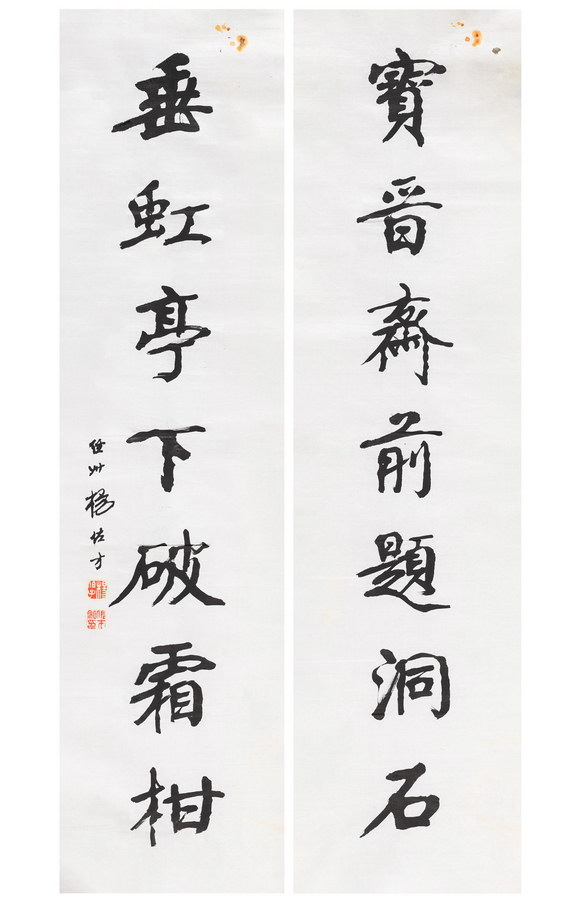 寶晉齋前題洞石
垂虹亭下破霜柑
任州楊佐才